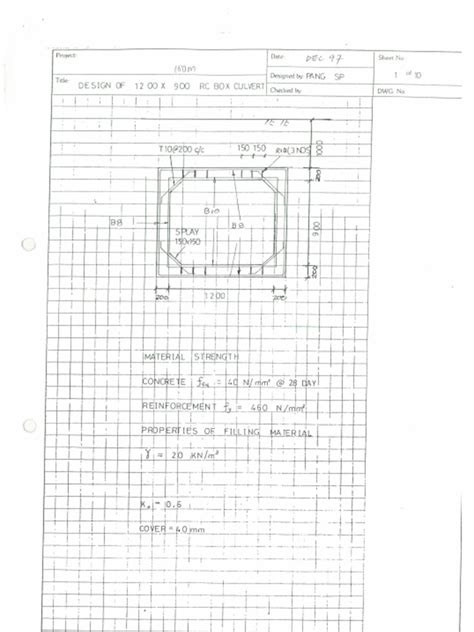 Project:
(6.0m)
Date: DEC 97
Sheet No.
Title: DESIGN OF 1200 X 900 RC BOX CULVERT
Designed by PANG SP
1 of 10
Checked by
DWG. No.
T10@200 c/c
150 150
1000
200
B10
B8
B8
SPLAY
150x150
900
200
200
1200
200
MATERIAL STRENGTH
CONCRETE fcu = 40 N/mm² @ 28 DAY
REINFORCEMENT fy = 460 N/mm²
PROPERTIES OF FILLING MATERIAL
γ = 20 KN/m³
= 0.6
COVER = 40 mm